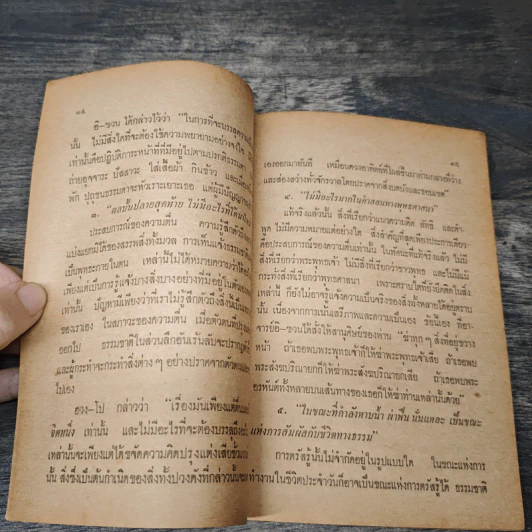 ๑๔
อี-ชวน ได้กล่าวไว้ว่า "ในการที่จะบรรลุความ
นั้น ไม่มีสิ่งใดที่จะต้องใช้ความพยายามอย่างจงใจ
เท่านั้นคือปฏิบัติภาระหน้าที่ที่มีอยู่ไปตามปรกติธรรมดา
ถ่ายอุจจาระ ปัสสาวะ ใส่เสื้อผ้า กินข้าว และเมื่อ
พัก ปุถุชนธรรมดาจะหัวเราะเยาะเธอ แต่ผู้มีปัญญาย่อม
๓. "ผลขั้นปลายสุดท้าย ไม่มีอะไรที่ใหม่
ประสบการณ์ของความตื่น ความรู้สึกตัว
แบ่งแยกมิได้ของสรรพสิ่งทั้งมวล การเห็นแจ้งธรรมชาติ
เป็นพุทธะภายในตน เหล่านี้ไม่ได้หมายความว่าได้
เพียงแต่เป็นการรู้แจ้งบางสิ่งบางอย่างที่มีอยู่ในตัวเอง
เท่านั้น ปัญหามีเพียงว่าที่เราไม่รู้สึกตัวถึงสิ่งนี้
ของเราเอง ในสภาวะของความตื่น เมื่อตัวตนที่ปรุง
ออกไป ธรรมชาติในส่วนลึกอันเร้นลับจะปรากฏ
และผู้กระทำจะกระทำสิ่งต่าง ๆ อย่างปราศจากตัวตน
ไปเอง
ฮวง-โป กล่าวว่า "เรื่องมันเพียงแต่
จิตหนึ่ง เท่านั้น และไม่มีอะไรที่จะต้องบรรลุถึง
เหล่านั้นจะเพียงแต่ได้ขจัดความคิดปรุงแต่งเสียชั่วขณะ
นั้น สิ่งซึ่งเป็นต้นกำเนิดของสิ่งทั้งปวงดังที่กล่าวนั้น
๑๕
เองออกมาทันที เหมือนดวงอาทิตย์ที่ไต่ขึ้นมาท่ามกลางที่ว่าง
และส่องสว่างทั่วจักรวาลโดยปราศจากสิ่งบดบังและขอบเขต"
๔. "ไม่มีอะไรมากในคำสอนทางพุทธศาสนา"
แท้จริงแล้วนั้น สิ่งที่เรียกว่าแนวความคิด ลัทธิ และคำ
พูด ไม่มีความหมายแต่อย่างใด สิ่งสำคัญที่สุดเพียงประการเดียว
คือประสบการณ์ของความตื่นเท่านั้น ในทัศนะที่แท้จริง แล้ว ไม่มี
สิ่งที่เรียกว่าพระพุทธเจ้า ไม่มีสิ่งที่เรียกว่าชาวพุทธ และไม่มีแม้
กระทั่งสิ่งที่เรียกว่าพุทธศาสนา เพราะตราบใดที่ยังยึดติดในสิ่ง
เหล่านี้ ก็ยังไม่อาจรู้แจ้งความเป็นจริงของสิ่งทั้งหลายได้อยู่ตราบ
นั้น เนื่องจากการเน้นเสรีภาพและความเป็นเอง ข้อนี้เอง ที่อา-
จารย์อี-ชวนได้สั่งให้สานุศิษย์ของท่าน "ฆ่าทุก ๆ สิ่งที่อยู่ขวาง
หน้า ถ้าเธอพบพระพุทธเจ้าก็ให้ฆ่าพระพุทธเจ้าเสีย ถ้าเธอพบ
พระสังฆปริณายกก็ให้ฆ่าพระสังฆปริณายกเสีย ถ้าเธอพบพระ
อรหันต์ทั้งหลายบนเส้นทางของเธอก็ให้ฆ่าท่านเหล่านั้นด้วย"
๕. "ในขณะที่กำลังหาบน้ำ ผ่าฟืน นั่นแหละ เป็นขณะ
แห่งการสัมผัสกับชีวิตทางธรรม"
การตรัสรู้นั้นไม่จำกัดอยู่ในรูปแบบใด ในขณะแห่งการ
ทำงานในชีวิตประจำวันก็อาจเป็นขณะแห่งการตรัสรู้ได้ ธรรมชาติ